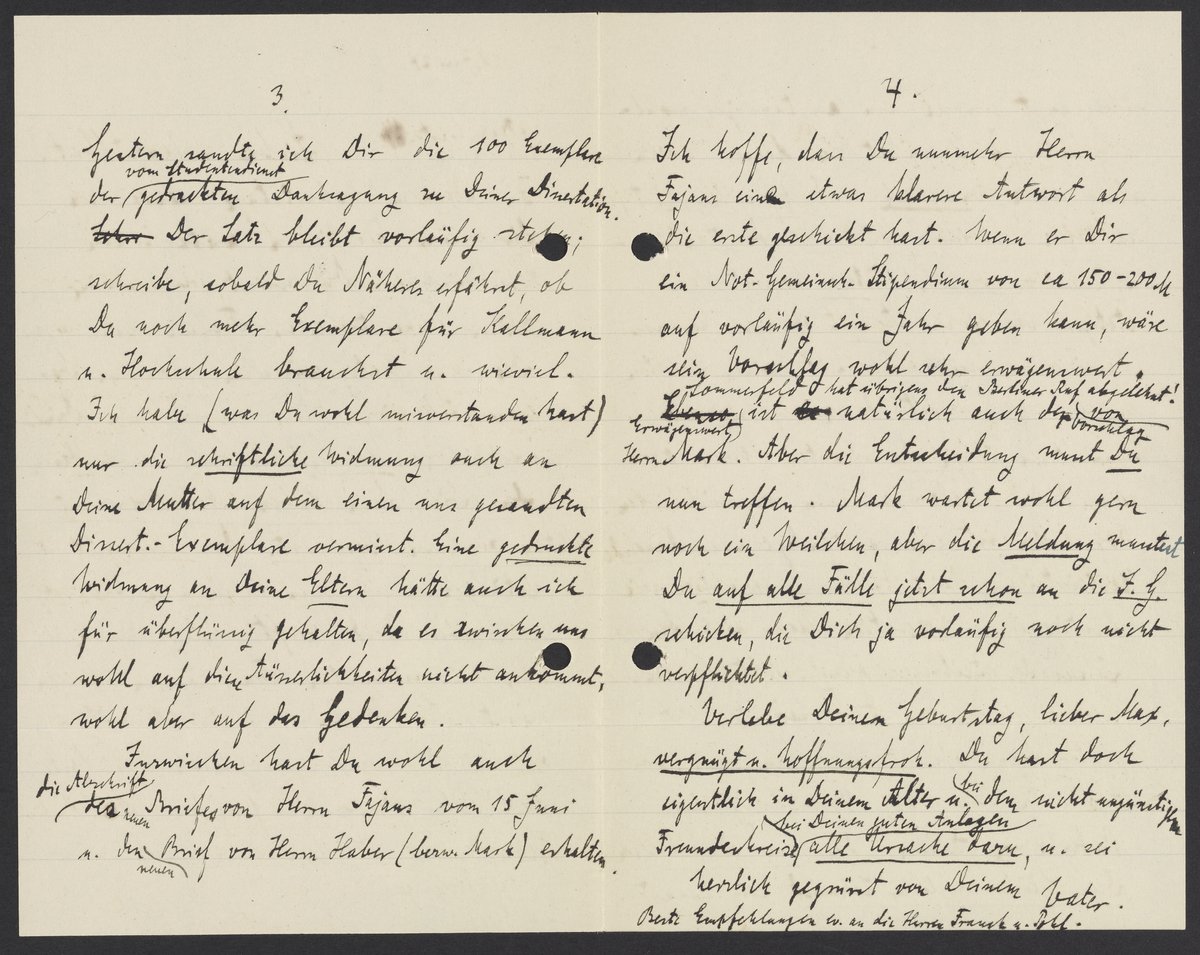 3.
Gestern sandte ich Dir die 100 Exemplare
vom Studentendienst
der gedruckten Danksagung zu Deiner Dissertation.
Der Satz bleibt vorläufig stehen;
schreibe, sobald Du Näheres erfährst, ob
Du noch mehr Exemplare für Kallmann
u. Hochschule brauchst u. wieviel.
Ich habe (was Du wohl missverstanden hast)
nur die schriftliche Widmung auch an
Deine Mutter auf dem einen uns gesandten
Dissert.-Exemplare vermisst. Eine gedruckte
Widmung an Deine Eltern hätte auch ich
für überflüssig gehalten, da es zwischen uns
wohl auf diese Äusserlichkeiten nicht ankommt,
wohl aber auf das Gedenken.
Inzwischen hast Du wohl auch
die Abschrift
des neuen Briefes von Herrn Fajans vom 15 Juni
u. den Brief von Herrn Haber (bezw. Mark) erhalten.
neuen
4.
Ich hoffe, dass Du nunmehr Herrn
Fajans eine etwas klarere Antwort als
die erste geschickt hast. Wenn er Dir
ein Not-Gemeinsch-Stipendium von ca 150-200 M
auf vorläufig ein Jahr geben kann, wäre
sein Vorschlag wohl sehr erwägenswert.
Sommerfeld hat übrigens den Berliner Ruf abgelehnt!
Erwägenswert ist natürlich auch der Vorschlag von
Herrn Mark. Aber die Entscheidung musst Du
nun treffen. Mark wartet wohl gern
noch ein Weilchen, aber die Meldung musstest
Du auf alle Fälle jetzt schon an die I. G.
schicken, die Dich ja vorläufig noch nicht
verpflichtet.
Verlebe Deinen Geburtstag, lieber Max,
vergnügt u. hoffnungsfroh. Du hast doch
eigentlich in Deinem Alter u. bei dem nicht ungünstigen
bei Deinen guten Anlagen
Freundeskreise alle Ursache dazu, u. sei
herzlich gegrüsst von Deinem Vater.
Beste Empfehlungen ev. an die Herren Franck u. Pohl.